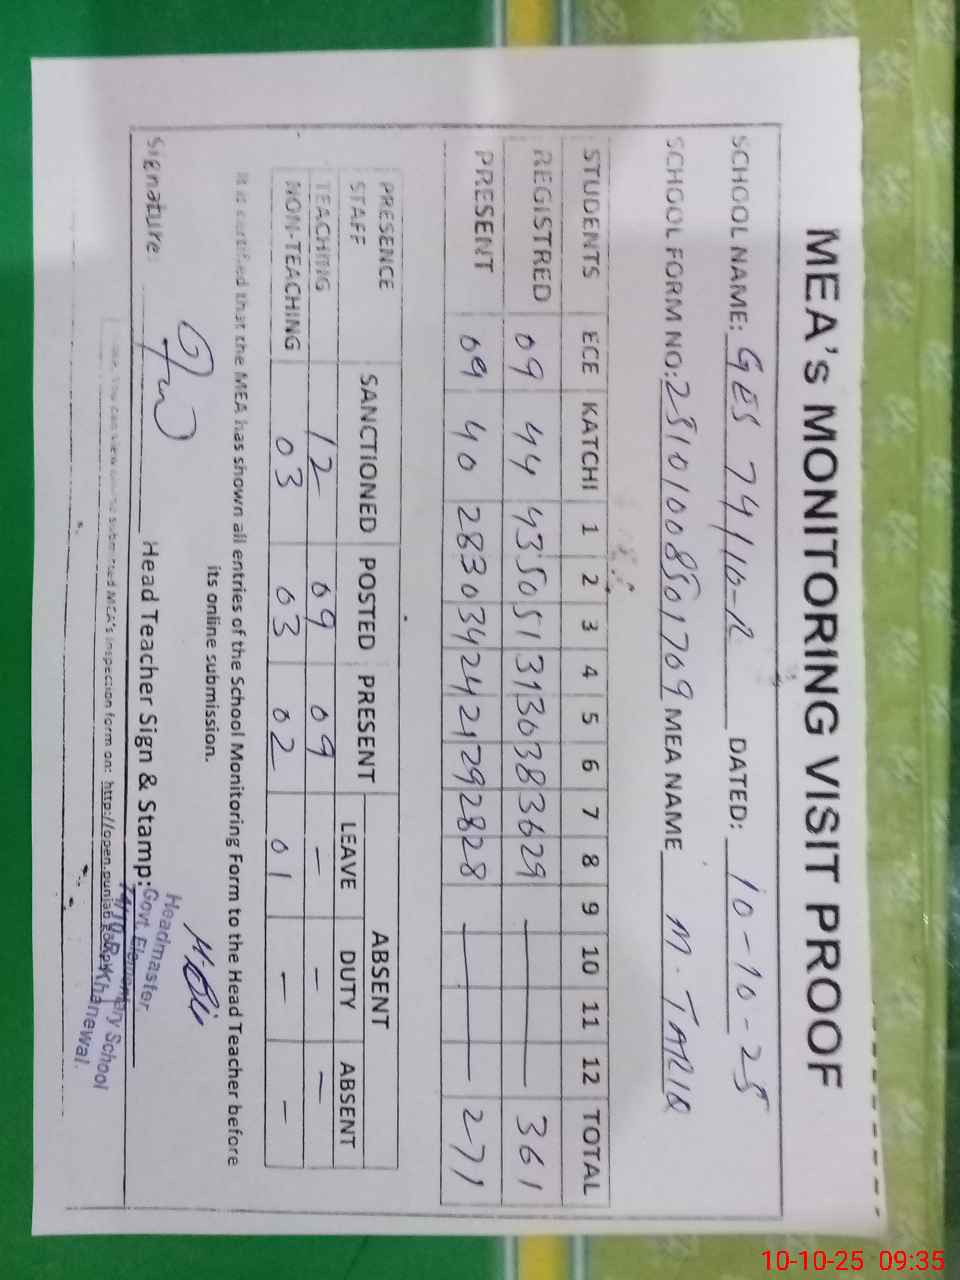 MEA's MONITORING VISIT PROOF
SCHOOL NAME: GES 74/10-R DATED: 10-10-25
SCHOOL FORM NO: MEA NAME M. TARIQ
STUDENTS ECE KATCHI 1 2 3 4 5 6 7 8 9 10 11 12 TOTAL
REGISTRED 09 44 43 50 51 31 30 38 36 29 — 361
PRESENT 09 40 28 30 34 24 21 29 28 28 — 271
PRESENCE STAFF SANCTIONED POSTED PRESENT ABSENT
LEAVE DUTY ABSENT
TEACHING 12 09 09 — — —
NON-TEACHING 03 03 02 01 — —
It is certified that the MEA has shown all entries of the School Monitoring Form to the Head Teacher before
its online submission.
Signature: Head Teacher Sign & Stamp:
Headmaster
Govt. Elementary School
74/10-R Khanewal.
You can view submitted MEA's inspection form on: http://open.punjab
10-10-25 09:35